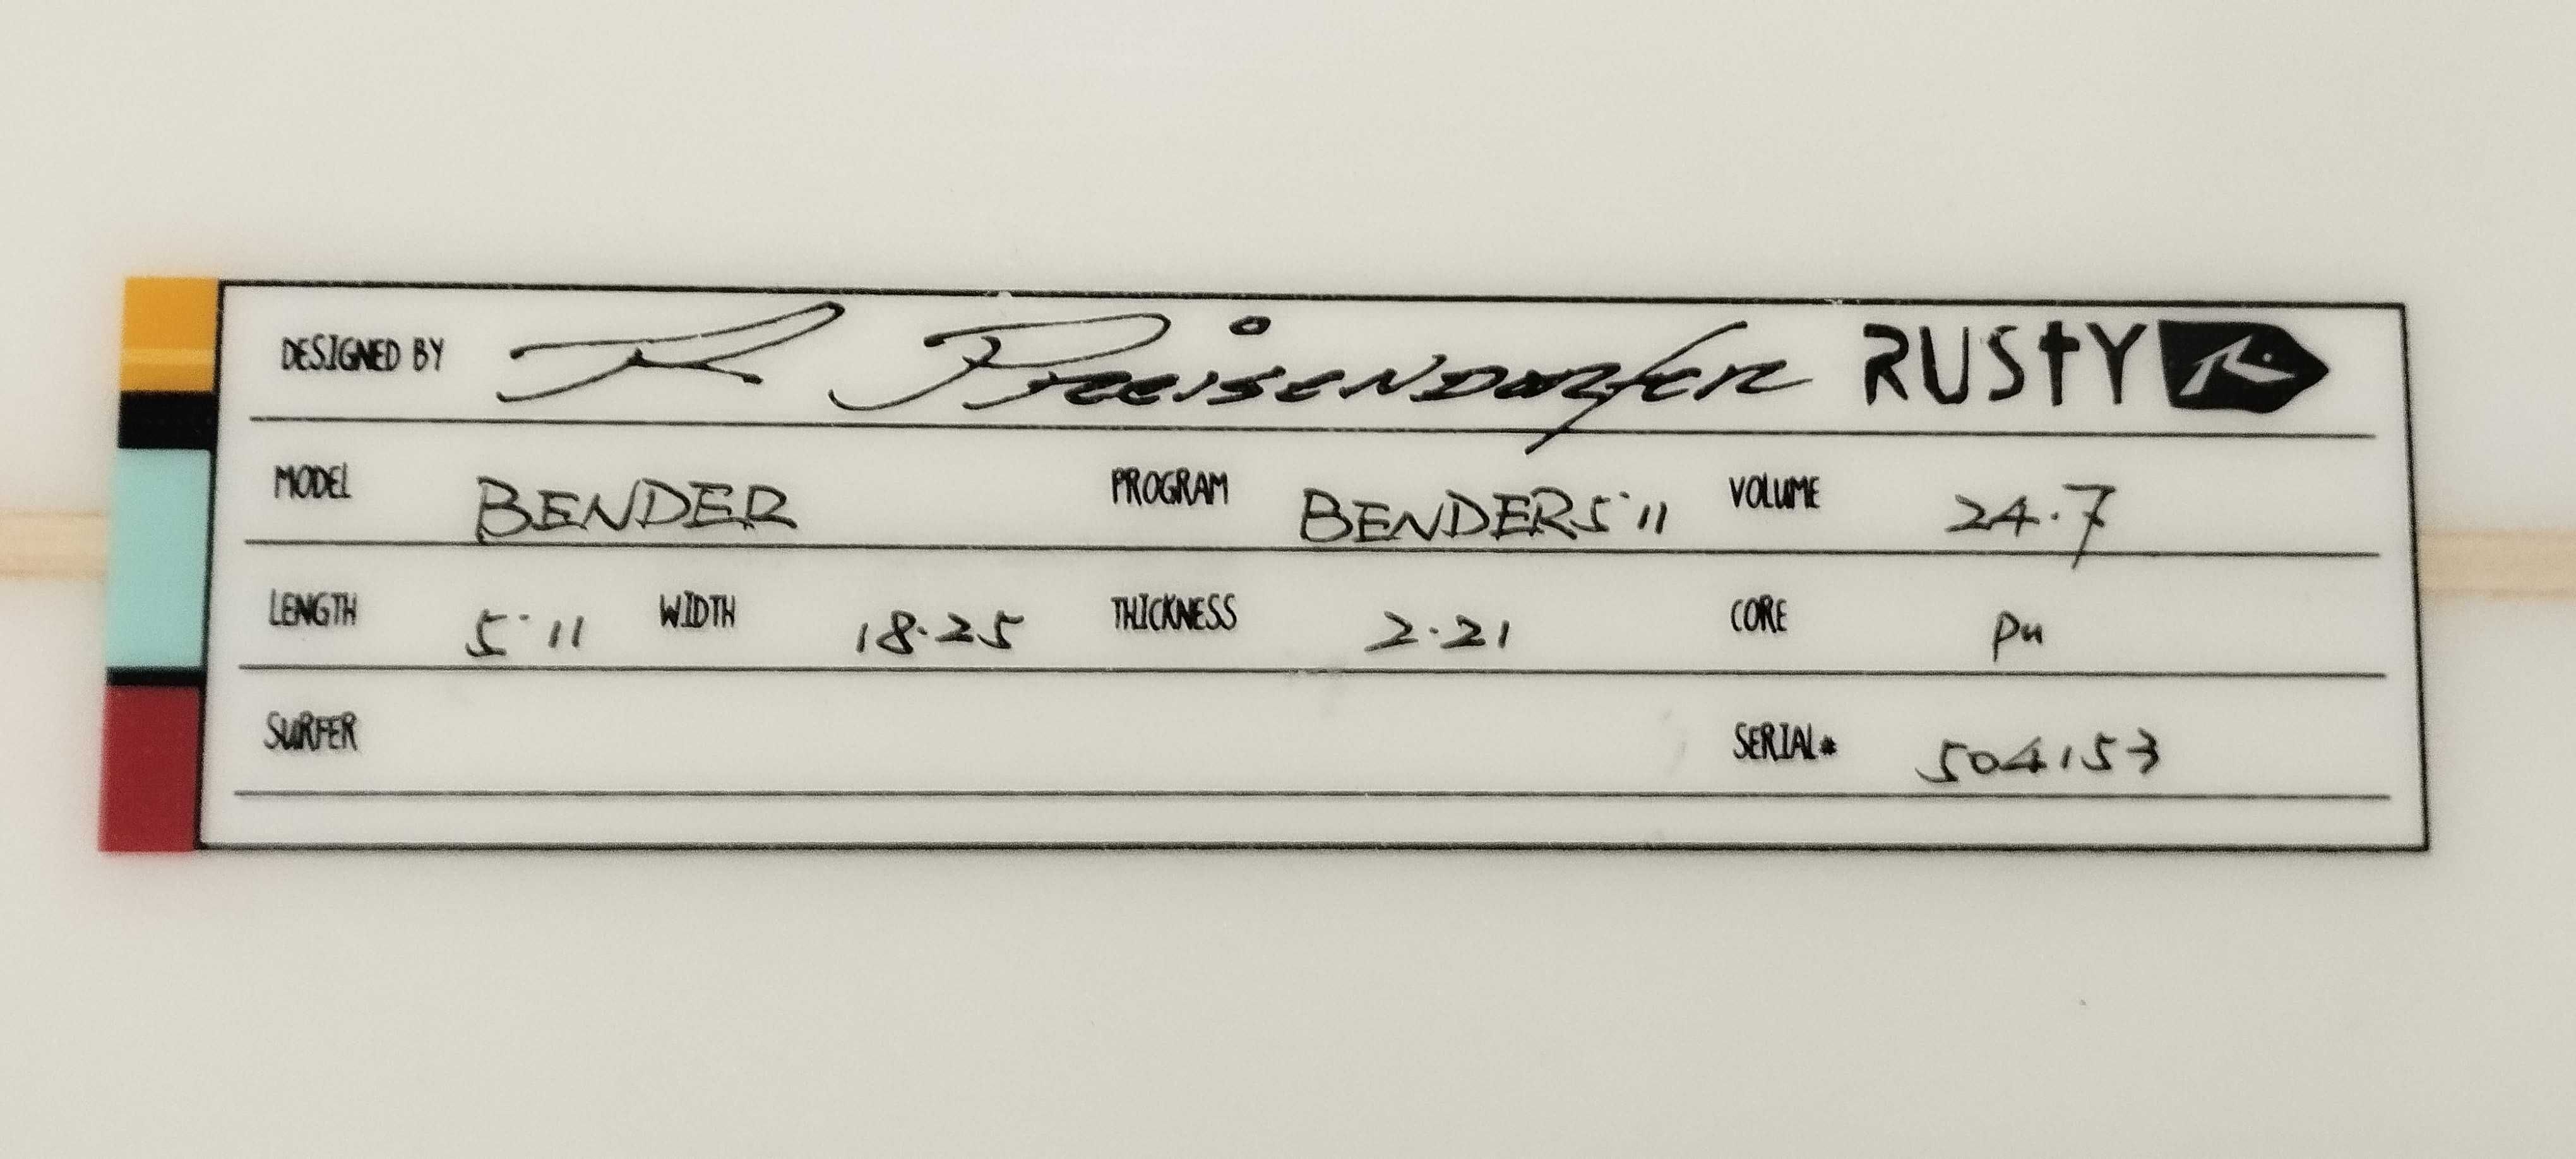 DESIGNED BY R Preisendorfer RUSTY
MODEL BENDER PROGRAM BENDER5'11 VOLUME 24.7
LENGTH 5'11 WIDTH 18.25 THICKNESS 2.21 CORE Pu
SURFER SERIAL# 504153